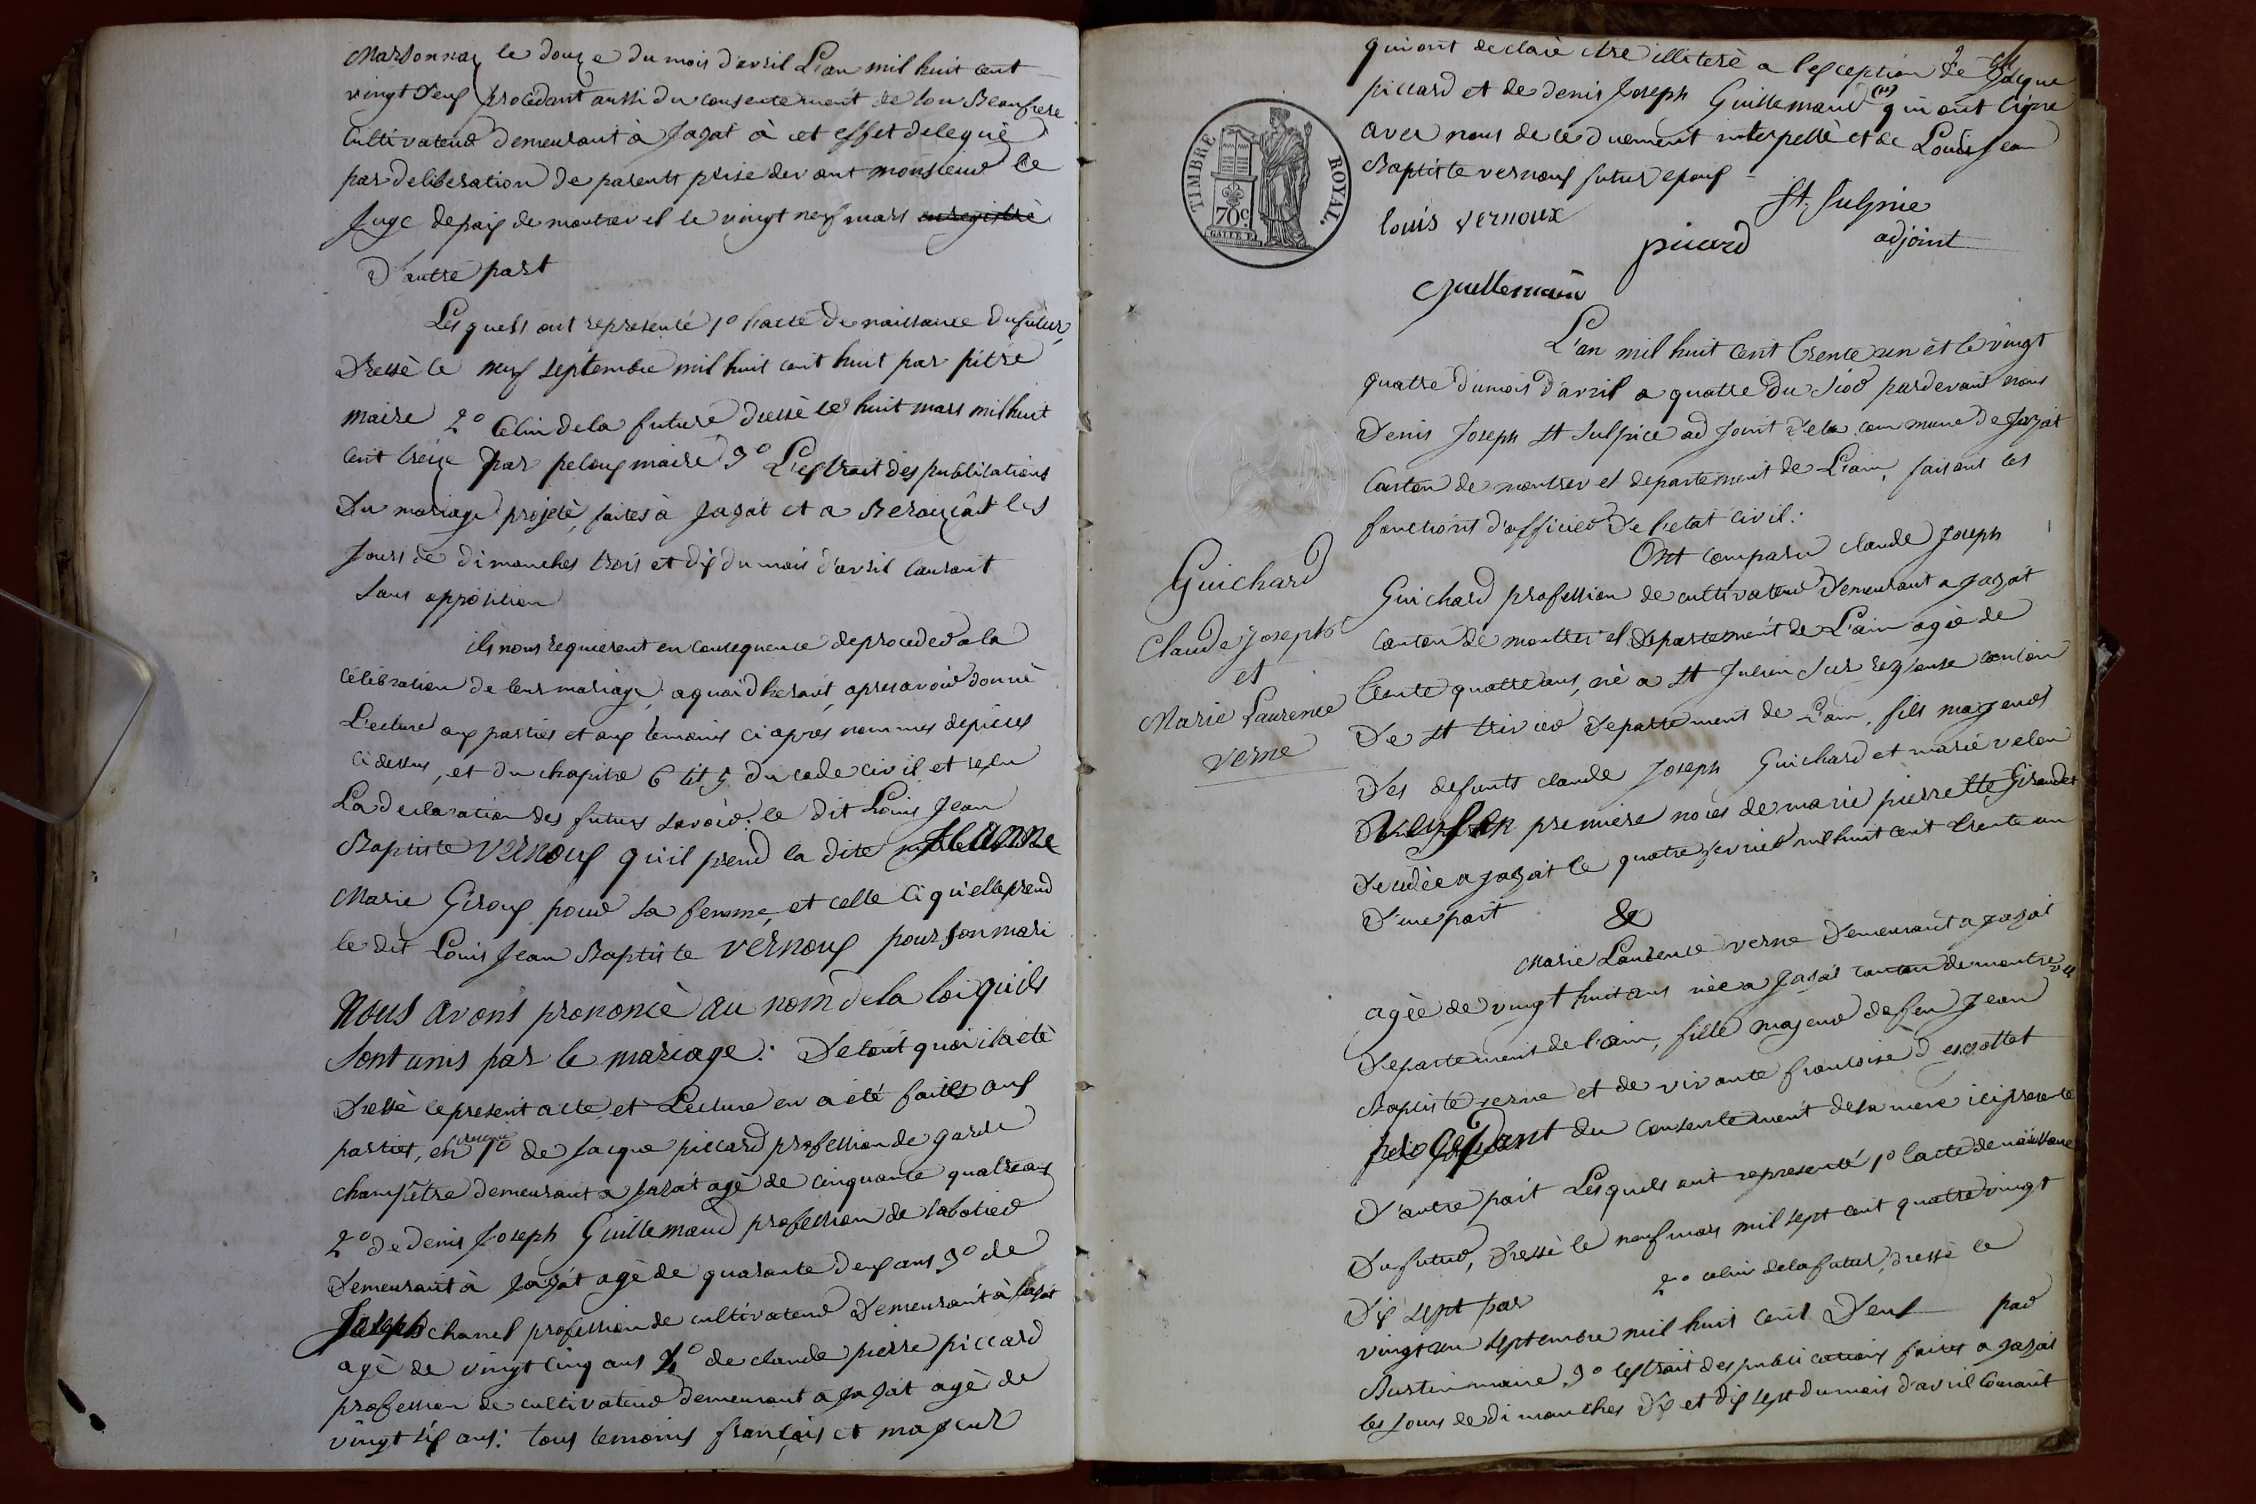 Marsonnay le douze du mois d'avril L'an mil huit cent
vingt deux procedant aussi du consentement de son Beaufrere
Cultivateur demeurant à Jazat à cet effet delegué
par deliberation de parents prise devant monsieur le
Juge de paix de montrevel le vingt neuf mars enregistré
D'autre part
Les quels ont representé 1º l'acte de naissance du futur,
Dressé le neuf septembre mil huit cent huit par pitre
maire 2º Celui de la future dressé le huit mars mil huit
cent treize par peloux maire 3º L'extrait des publications
Du mariage projeté, faites à Jazat et a Berezeat les
Jours de dimanches trois et dix du mois d'avril Courant
sans opposition
ils nous requierent en consequence de proceder à la
célébration de leur mariage, a quoi adherant, apres avoir donné
Lecture aux parties et aux temoins ci apres nommes de pieces
ci dessus, et du chapitre 6 tit 5 du code civil, et reçu
La declaration des futurs savoir: le dit Louis Jean
Baptiste vernoux qu'il prend la dite Jeanne
Marie Giroux pour sa femme, et celle ci qu'elle prend
le dit Louis Jean Baptiste vernoux pour son mari
Nous avons prononcé au nom de la loi qu'ils
sont unis par le mariage: De tout quoi il a été
Dressé le present acte, et Lecture en a été faite aux
parties, en presence 1º de Jacque piccard profession de garde
champêtre demeurant a Jazat agé de cinquante quatre ans
2º de Denis Joseph Guillemaud profession de
Demeurant à Jazat agé de quarante deux ans 3º de
Joseph chanel profession de cultivateur Demeurant à Jazat
agé de vingt cinq ans 4º de claude pierre piccard
profession de cultivateur demeurant a Jazat agé de
vingt six ans: tous temoins français et majeur
qui ont declaré etre illiteré a l'exception de Jacque
piccard et de denis Joseph Guillemaud qui ont signé
avec nous de ce duement interpellé et de Louis Jean
Baptiste vernoux futur epoux
St. Sulpice
adjoint
louis vernoux
picard
Guillemaud
TIMBRE ROYAL.
70c
L'an mil huit cent trente un et le vingt
quatre du mois d'avril a quatre du soir pardevant nous
Denis Joseph St Sulpice adjoint de la commune de Jazat
Canton de montrevel departement de L'ain, faisant les
fonctions d'officier de l'etat civil:
Ont comparu claude Joseph
Guichard
Claude Joseph
et
Marie Laurence
verne
Guichard profession de cultivateur Demeurant a Jazat
canton de montrevel departement de L'ain agé de
trente quatre ans, né a St Julien sur reyssouse canton
De St trivier Departement de L'ain, fils majeur
Des defunts claude Joseph Guichard et marie velon
veuf en premiere noces de marie pierrette Giraudet
Decedée a Jazat le quatre fevrier mil huit cent trente un
D'une part &
Marie Laurence verne Demeurant a Jazat
agée de vingt huit ans née a Jazat canton de montrevel
Departement de l'ain, fille majeur de feu Jean
Baptiste verne et de vivante françoise
procedant du consentement de sa mere ici presente
D'autre part Les quels ont representé 1º l'acte de naissance
Du futur, Dressé le neuf mars mil sept cent quatre vingt
Dix sept par 2º celui de la futur, dressé le
vingt un septembre mil huit cent Deux par
Burtin maire 3º l'extrait des publications faites a Jazat
les Jours de dimanches dix et dix sept du mois d'avril Courant